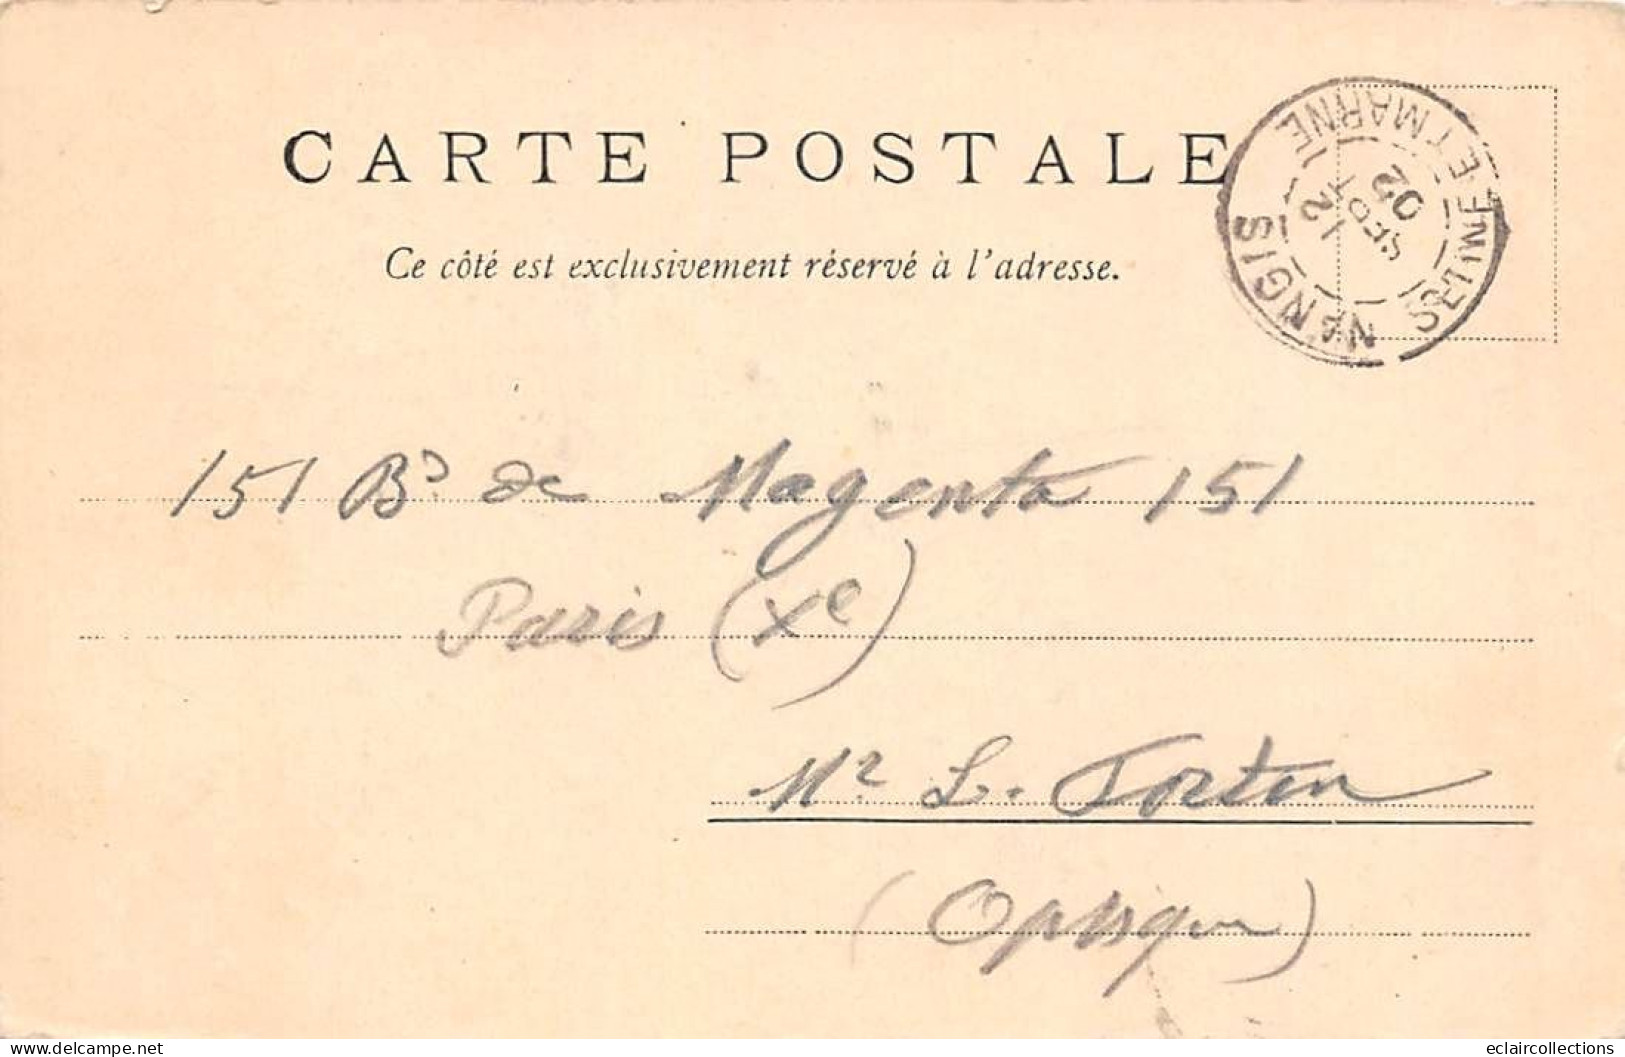 CARTE POSTALE
Ce côté est exclusivement réservé à l'adresse.
NANGIS
SEINE ET MARNE
12
SEPT
02
151 Bd de Magenta 151
Paris (Xe)
Mr L. Fortin
(Optique)
delcampe.net
eclaircollections